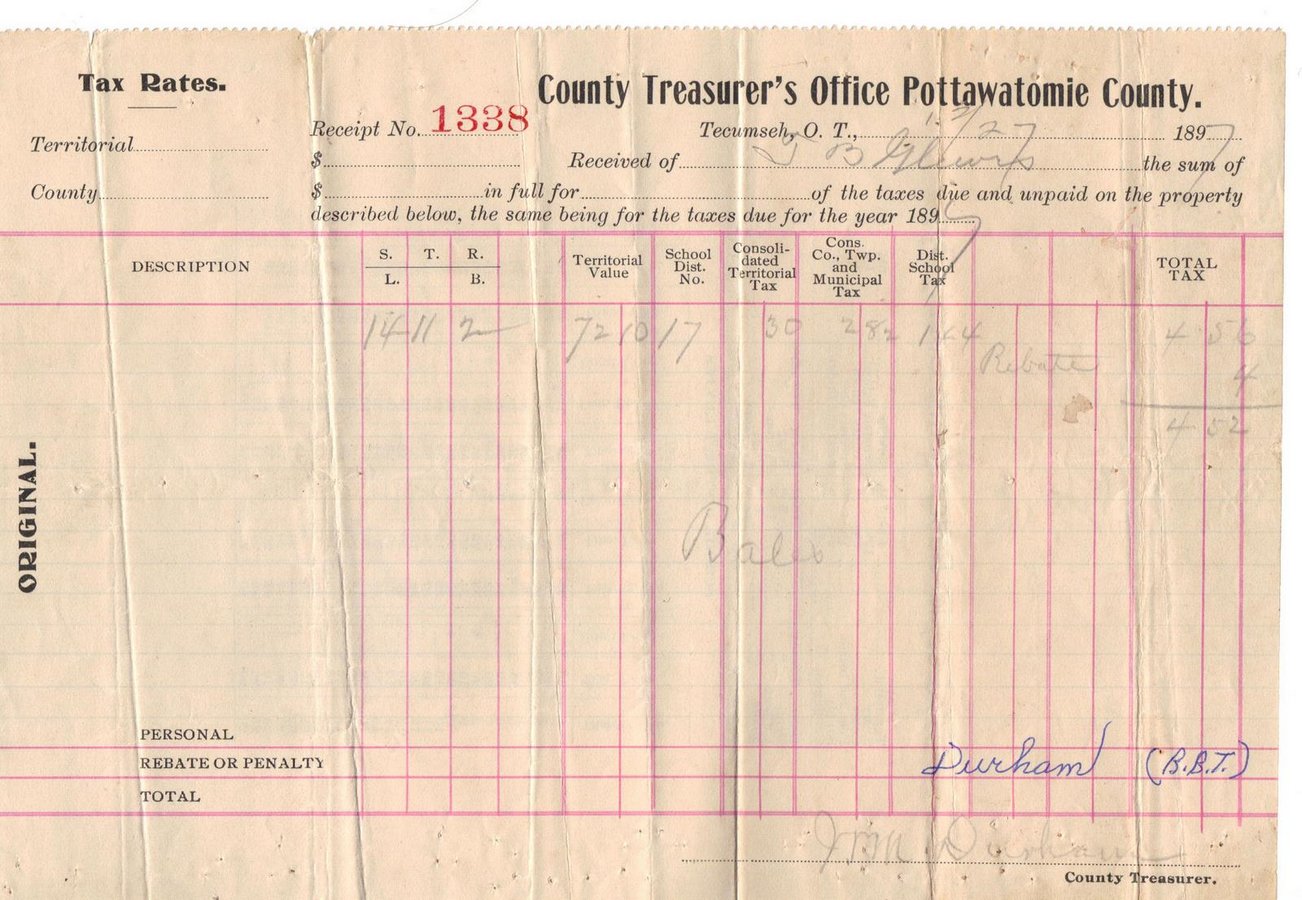 Tax Rates.
County Treasurer's Office Pottawatomie County.
Receipt No. 1338
Tecumseh, O. T., 12/27 1897
Territorial
$
Received of B the sum of
County
$ in full for of the taxes due and unpaid on the property
described below, the same being for the taxes due for the year 1897
DESCRIPTION S. T. R. Territorial Value School Dist. No. Consolidated Territorial Tax Cons. Co., Twp. and Municipal Tax Dist. School Tax TOTAL TAX
L. B.
14 11 2 72 10 17 30 2 82 1 44 4 56
Rebate 4
4 52
ORIGINAL.
Bales
PERSONAL
REBATE OR PENALTY Durham (B.B.T.)
TOTAL
Durham
County Treasurer.